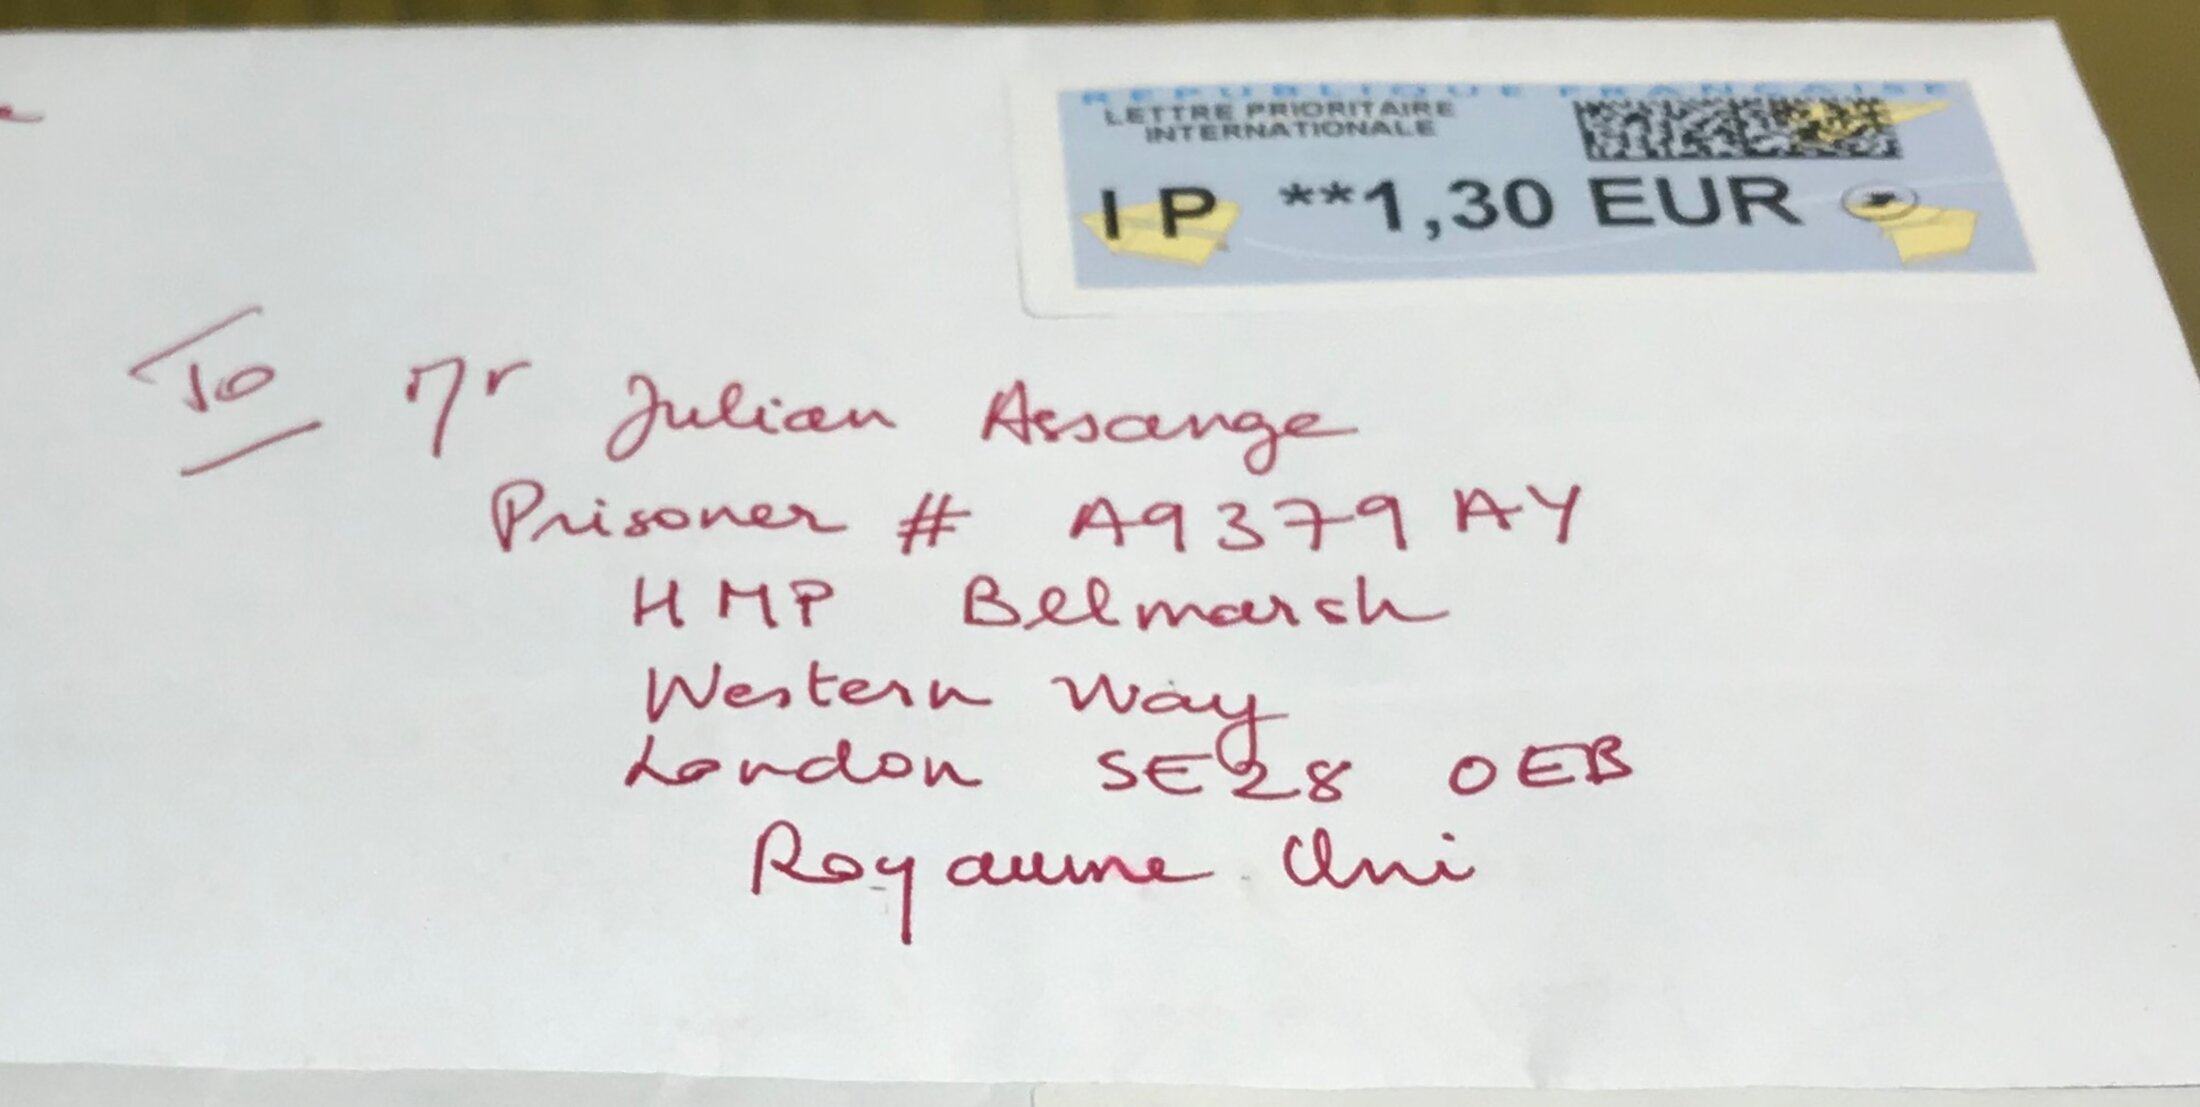 REPUBLIQUE FRANCAISE
LETTRE PRIORITAIRE
INTERNATIONALE
IP **1,30 EUR
To Mr Julian Assange
Prisoner # A9379AY
HMP Belmarsh
Western Way
London SE28 0EB
Royaume Uni